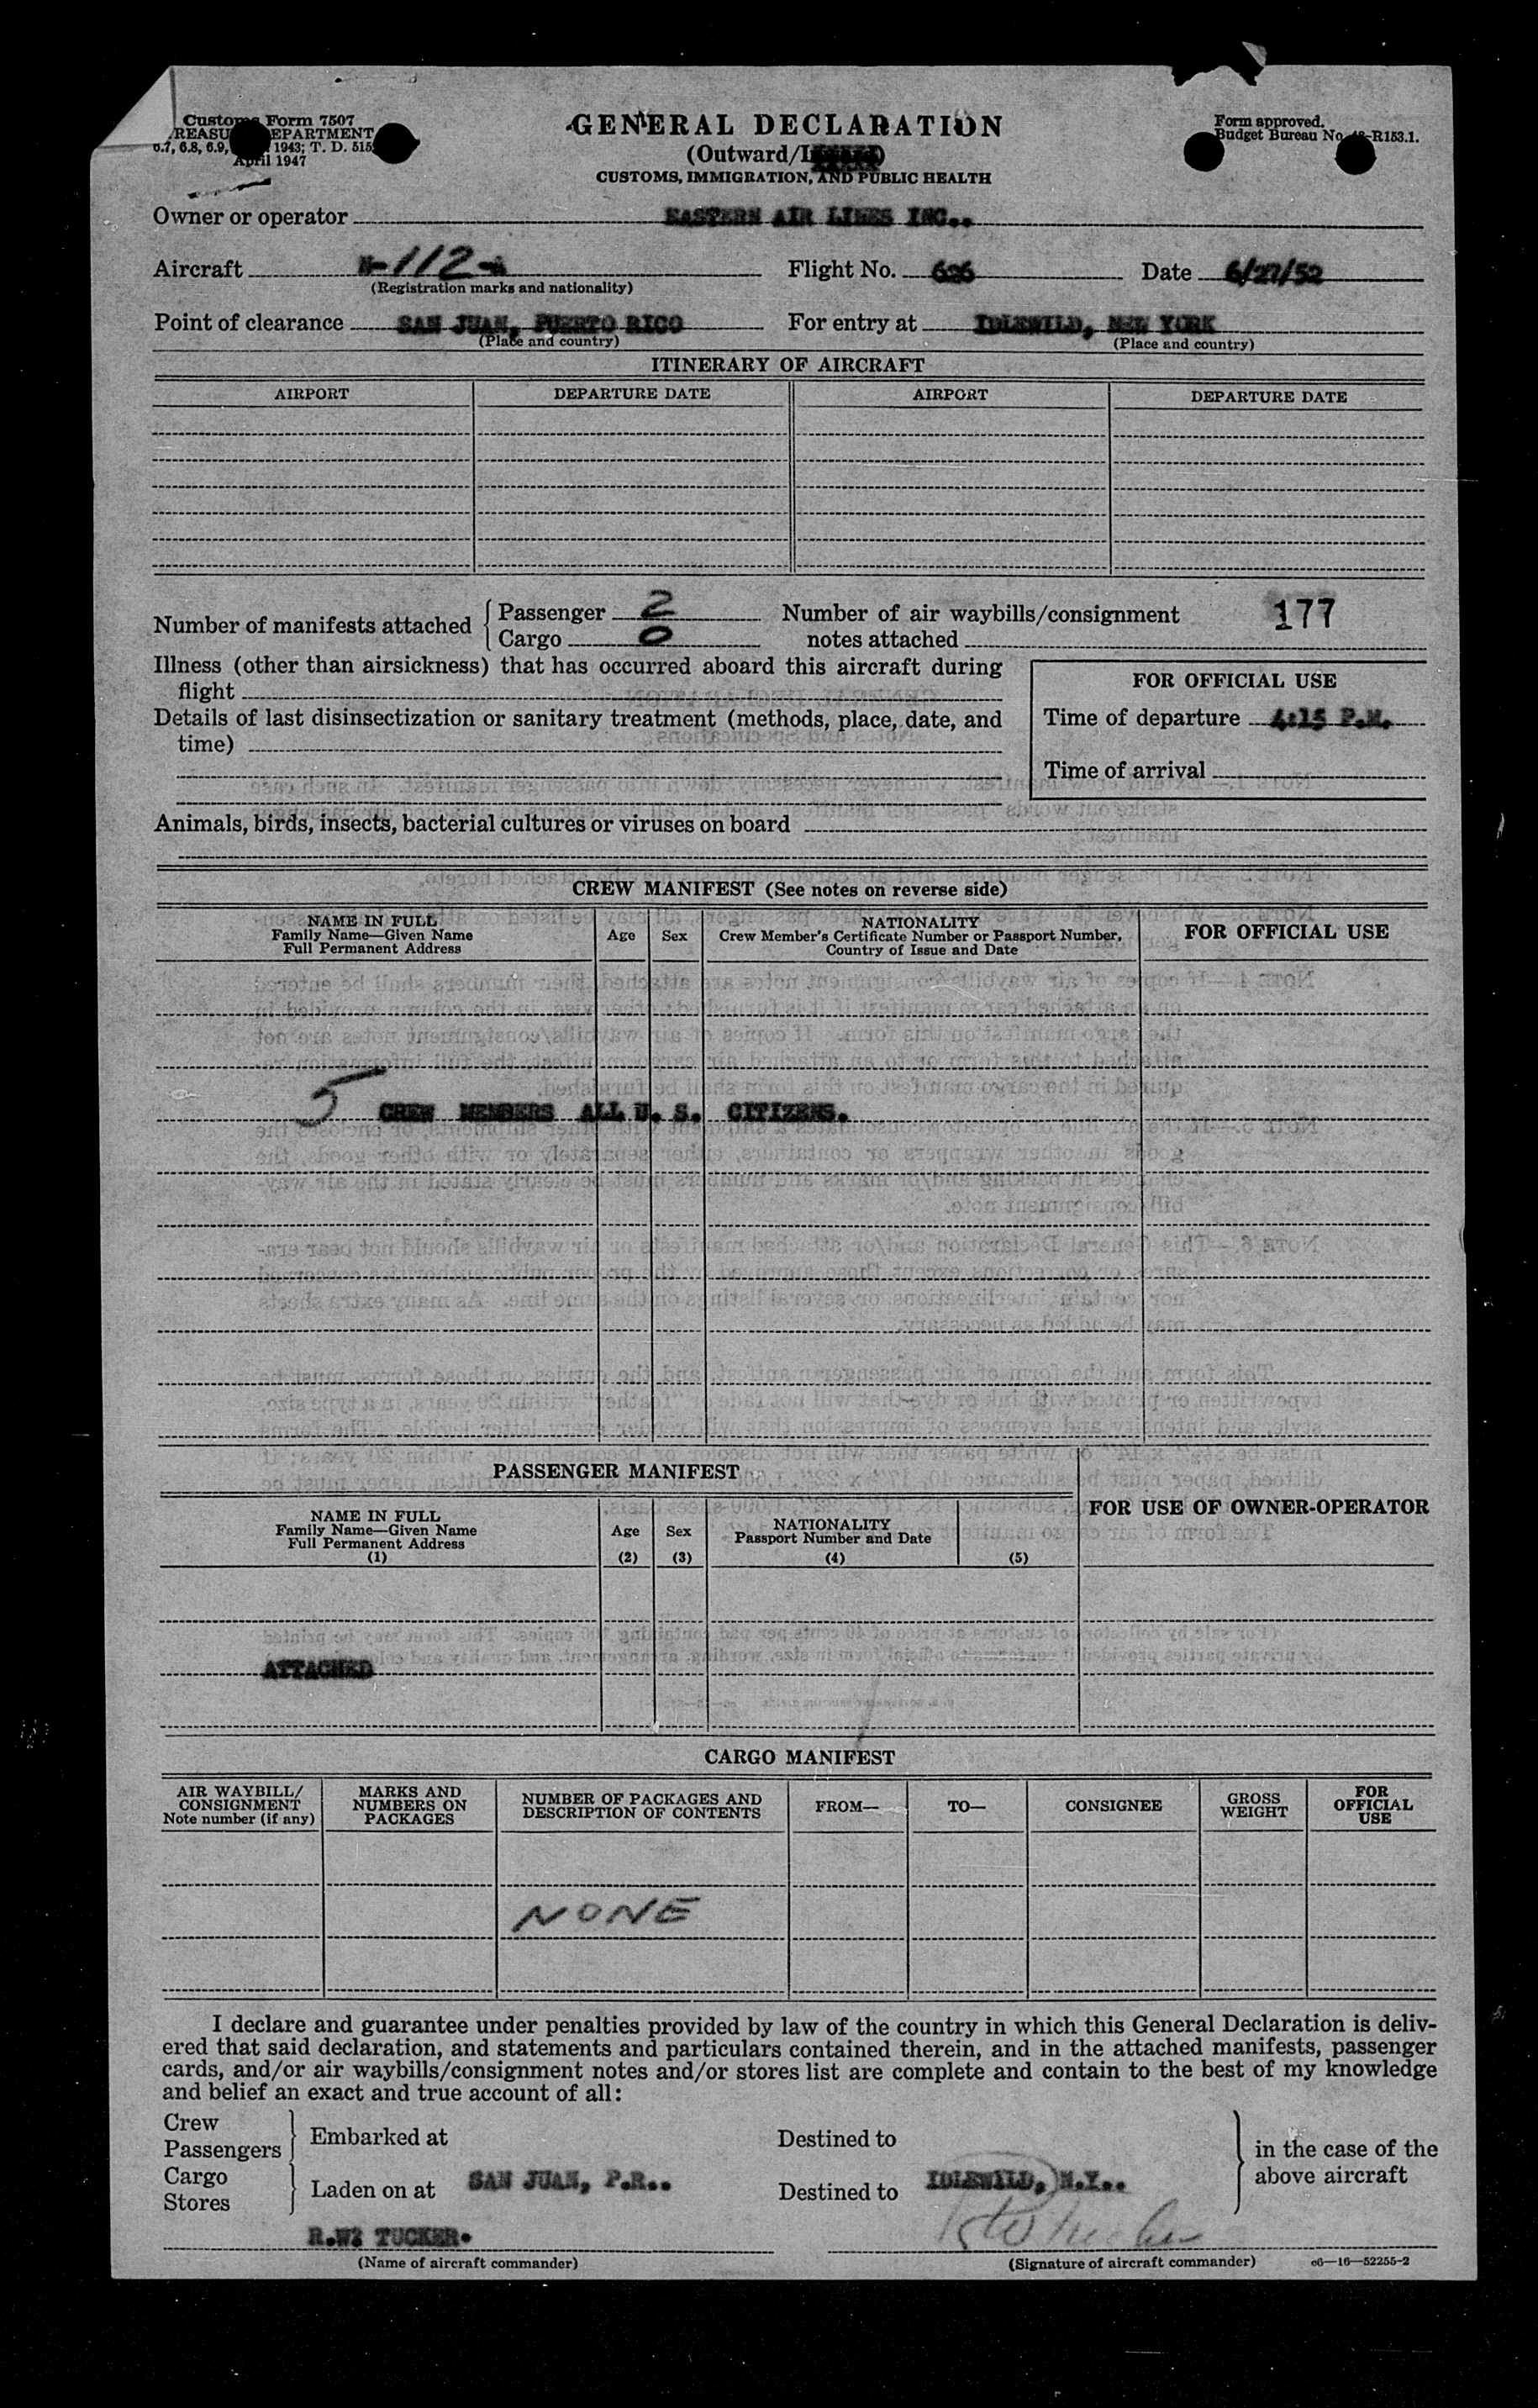 Customs Form 7507
TREASURY DEPARTMENT
6.7, 6.8, 6.9, 1943; T. D. 515
April 1947
GENERAL DECLARATION
(Outward/
CUSTOMS, IMMIGRATION, AND PUBLIC HEALTH
Form approved.
Budget Bureau No. 48-R153.1.
Owner or operator EASTERN AIR LINES INC..
Aircraft N-112-A Flight No. 626 Date 6/27/52
(Registration marks and nationality)
Point of clearance SAN JUAN, PUERTO RICO For entry at IDLEWILD, NEW YORK
(Place and country) (Place and country)
ITINERARY OF AIRCRAFT
AIRPORT DEPARTURE DATE AIRPORT DEPARTURE DATE
Number of manifests attached Passenger 2 Number of air waybills/consignment 177
Cargo 0 notes attached
Illness (other than airsickness) that has occurred aboard this aircraft during
flight
FOR OFFICIAL USE
Details of last disinsectization or sanitary treatment (methods, place, date, and
time)
Time of departure 4:15 P.M.
Time of arrival
Animals, birds, insects, bacterial cultures or viruses on board
CREW MANIFEST (See notes on reverse side)
NAME IN FULL
Family Name—Given Name
Full Permanent Address
Age
Sex
NATIONALITY
Crew Member's Certificate Number or Passport Number,
Country of Issue and Date
FOR OFFICIAL USE
5 CREW MEMBERS ALL U. S. CITIZENS.
PASSENGER MANIFEST
NAME IN FULL
Family Name—Given Name
Full Permanent Address
(1)
Age
(2)
Sex
(3)
NATIONALITY
Passport Number and Date
(4)
(5)
FOR USE OF OWNER-OPERATOR
ATTACHED
CARGO MANIFEST
AIR WAYBILL/
CONSIGNMENT
Note number (if any)
MARKS AND
NUMBERS ON
PACKAGES
NUMBER OF PACKAGES AND
DESCRIPTION OF CONTENTS
FROM—
TO—
CONSIGNEE
GROSS
WEIGHT
FOR
OFFICIAL
USE
NONE
I declare and guarantee under penalties provided by law of the country in which this General Declaration is deliv-
ered that said declaration, and statements and particulars contained therein, and in the attached manifests, passenger
cards, and/or air waybills/consignment notes and/or stores list are complete and contain to the best of my knowledge
and belief an exact and true account of all:
Crew
Passengers
Embarked at
Destined to
Cargo
Stores
Laden on at SAN JUAN, P.R..
Destined to IDLEWILD, N.Y..
in the case of the
above aircraft
R.W. TUCKER.
(Name of aircraft commander)
RW Tucker
(Signature of aircraft commander)
c6—16—52255-2